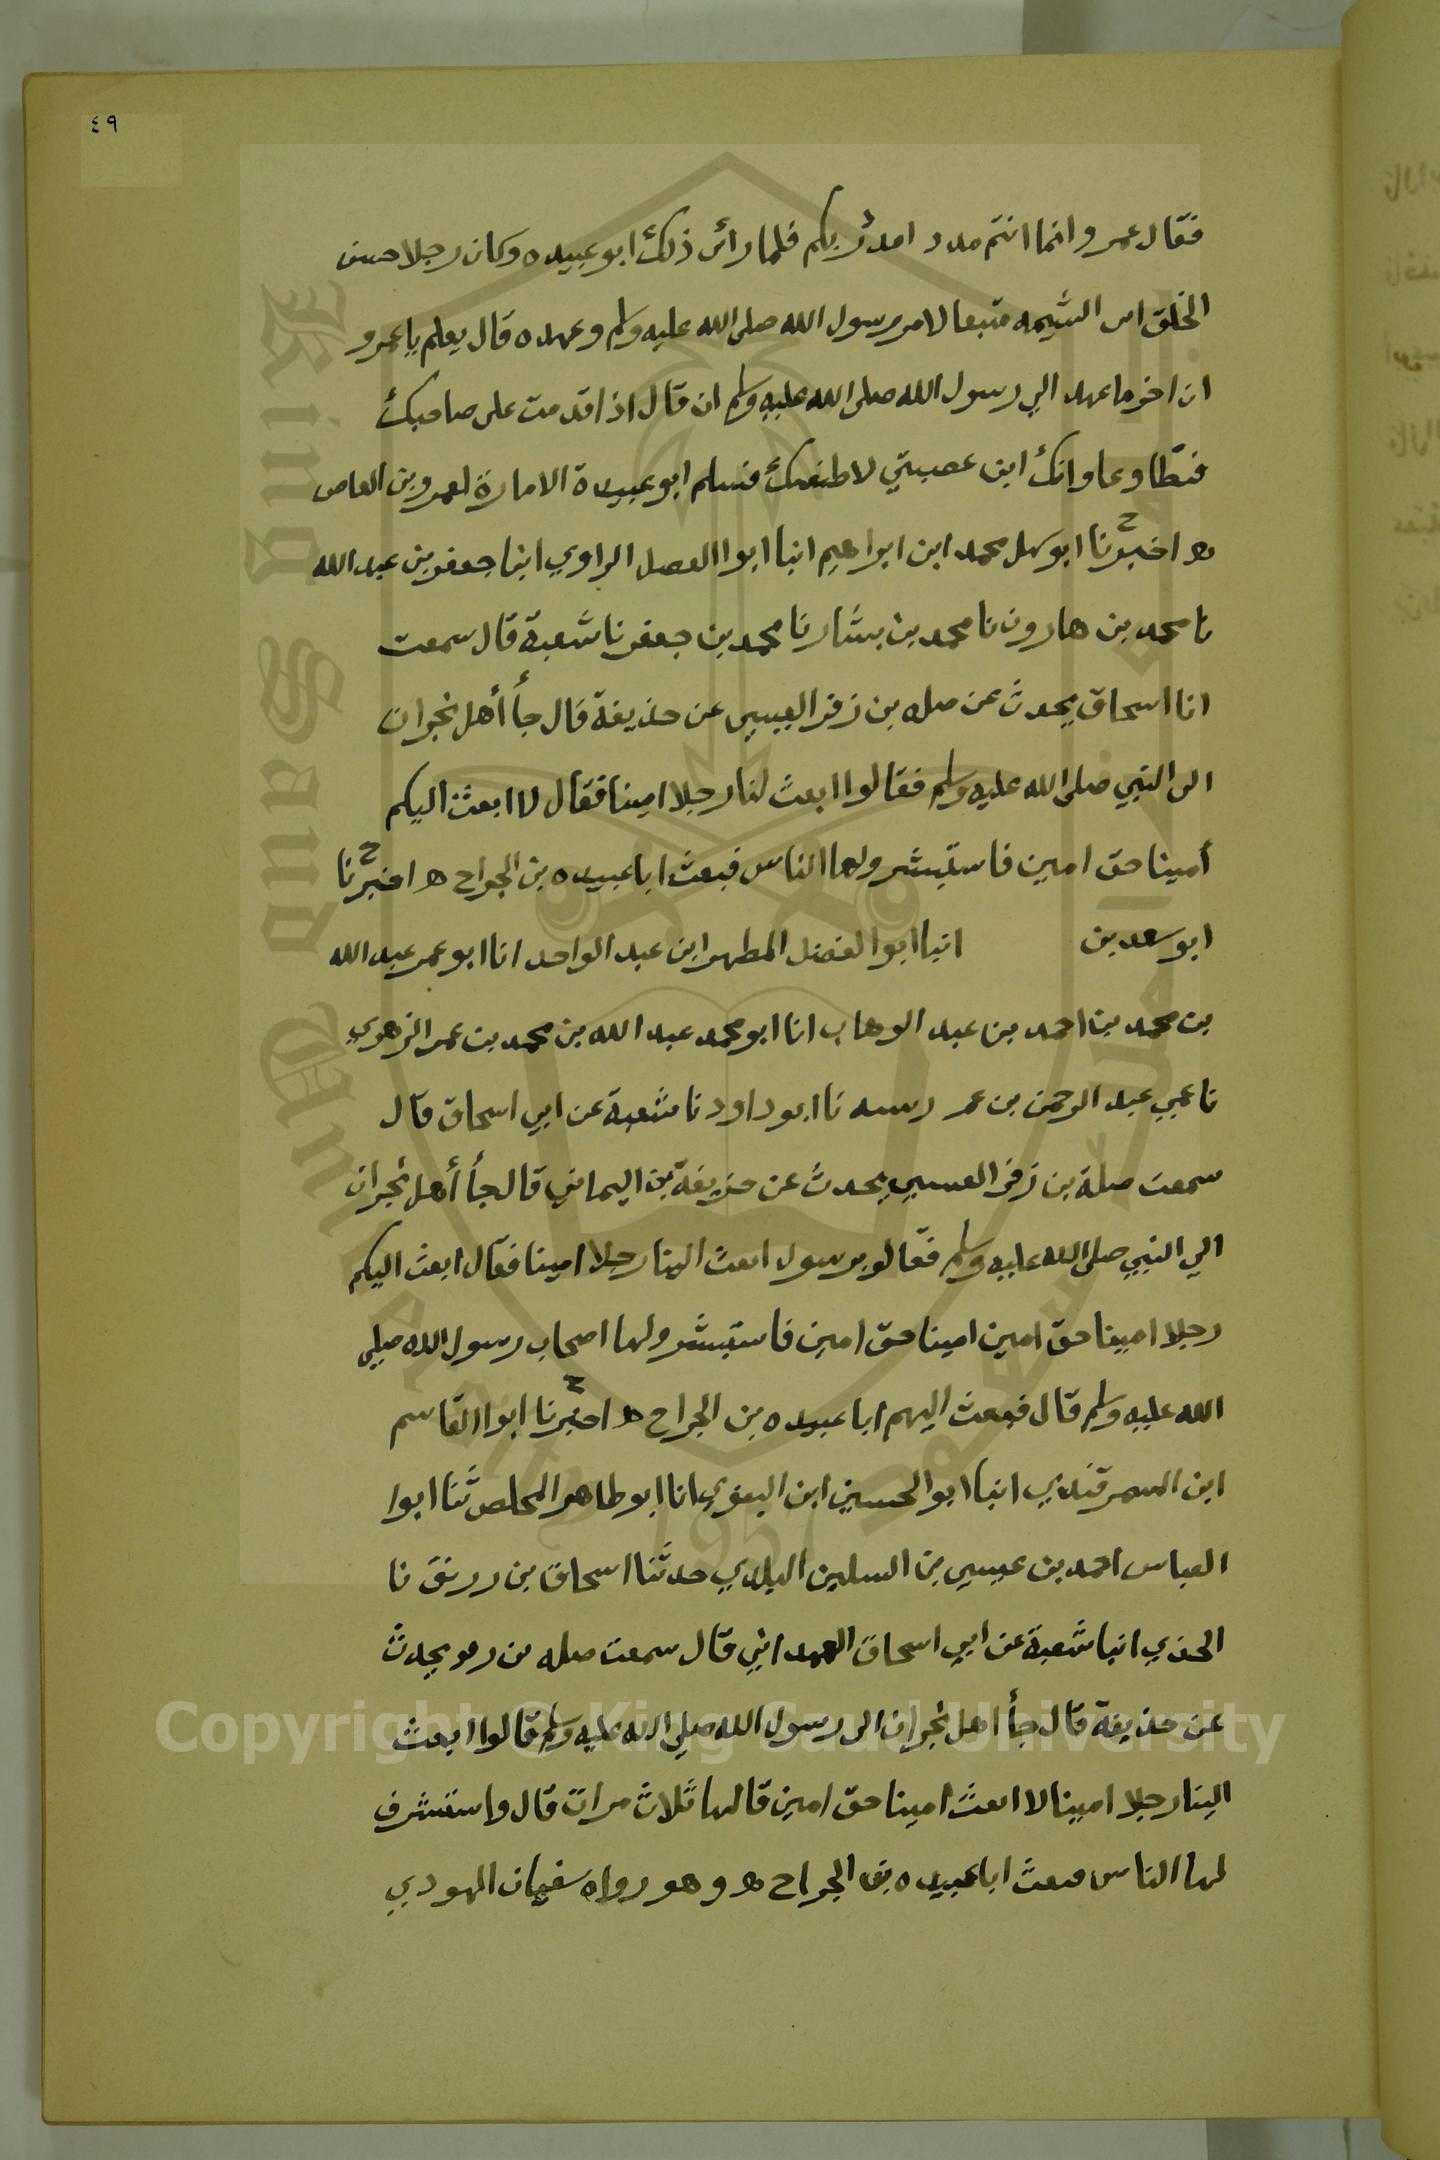 ٤٩
فقال عمرو انما انتم مدد امددت بكم فلما رأى ذلك ابو عبيده وكان رجلا حسن
الخلق لين الشيمه متبعا لامر رسول الله صلى الله عليه وسلم وعهده قال يعلم يا عمرو
ان اخر ما عهد الي رسول الله صلى الله عليه وسلم ان قال اذا قدمت على صاحبك
فتطاوعا وانك ابن عصيتي لاطيعنك فسلم ابو عبيدة الامارة لعمرو بن العاص
ه اخبرنا ابو سهل محمد ابن ابراهيم انبا ابوا الفصل الراوي ابنا جعفر بن عبد الله
نا محمد بن هارون نا محمد بن بشار نا محمد بن جعفر نا شعبة قال سمعت
انا اسحاق يحدث عن صله بن زفر العبسي عن حذيفة قال جأ أهل نجران
الى النبي صلى الله عليه وسلم فقالوا ابعث لنا رجلا امينا فقال لا ابعثن اليكم
أمينا حق امين فاستبشروا لها الناس فبعث ابا عبيده بن الجراح ه اخبرنا
ابو سعد بن انبا ابوا الفضل المطهر ابن عبد الواحد انا ابو عمر عبد الله
بن محمد بن احمد بن عبد الوهاب انا ابو محمد عبد الله بن محمد بن عمر الزهري
نا عمي عبد الرحمن بن عمر رسته نا ابو داود نا شعبة عن ابي اسحاق قال
سمعت صلة بن زفر العبسي يحدث عن حذيفة بن اليماني قال جأ أهل نجران
الي النبي صلى الله عليه وسلم فقالو يرسول ابعث الينا رجلا امينا فقال ابعث اليكم
رجلا امينا حق امين امينا حق امين فاستبشر ولها اصحاب رسول الله صلي
الله عليه وسلم قال فبعث اليهم ابا عبيده بن الجراح ه اخبرنا ابوا القاسم
ابن السمرقندي انبا ابو الحسين ابن البغوي انا ابو طاهر المخلص ثنا ابوا
العباس احمد بن عيسي بن السلين البلدي حدثنا اسحاق بن زريق نا
الجذي انبا شعبة عن ابي اسحاق الهمداني قال سمعت صله بن زفر يحدث
عن حذيفة قال جأ اهل نجران الى رسول الله صلي الله عليه وسلم قالوا ابعث
الينا رجلا امينا لا ابعث امينا حق امين قالها ثلاث مرات قال واستشرف
لها الناس فبعث ابا عبيده بن الجراح ه وهو رواه سفيان الهودي
Copyright © King Saud University
King Saud University
جامعة الملك سعود
1957